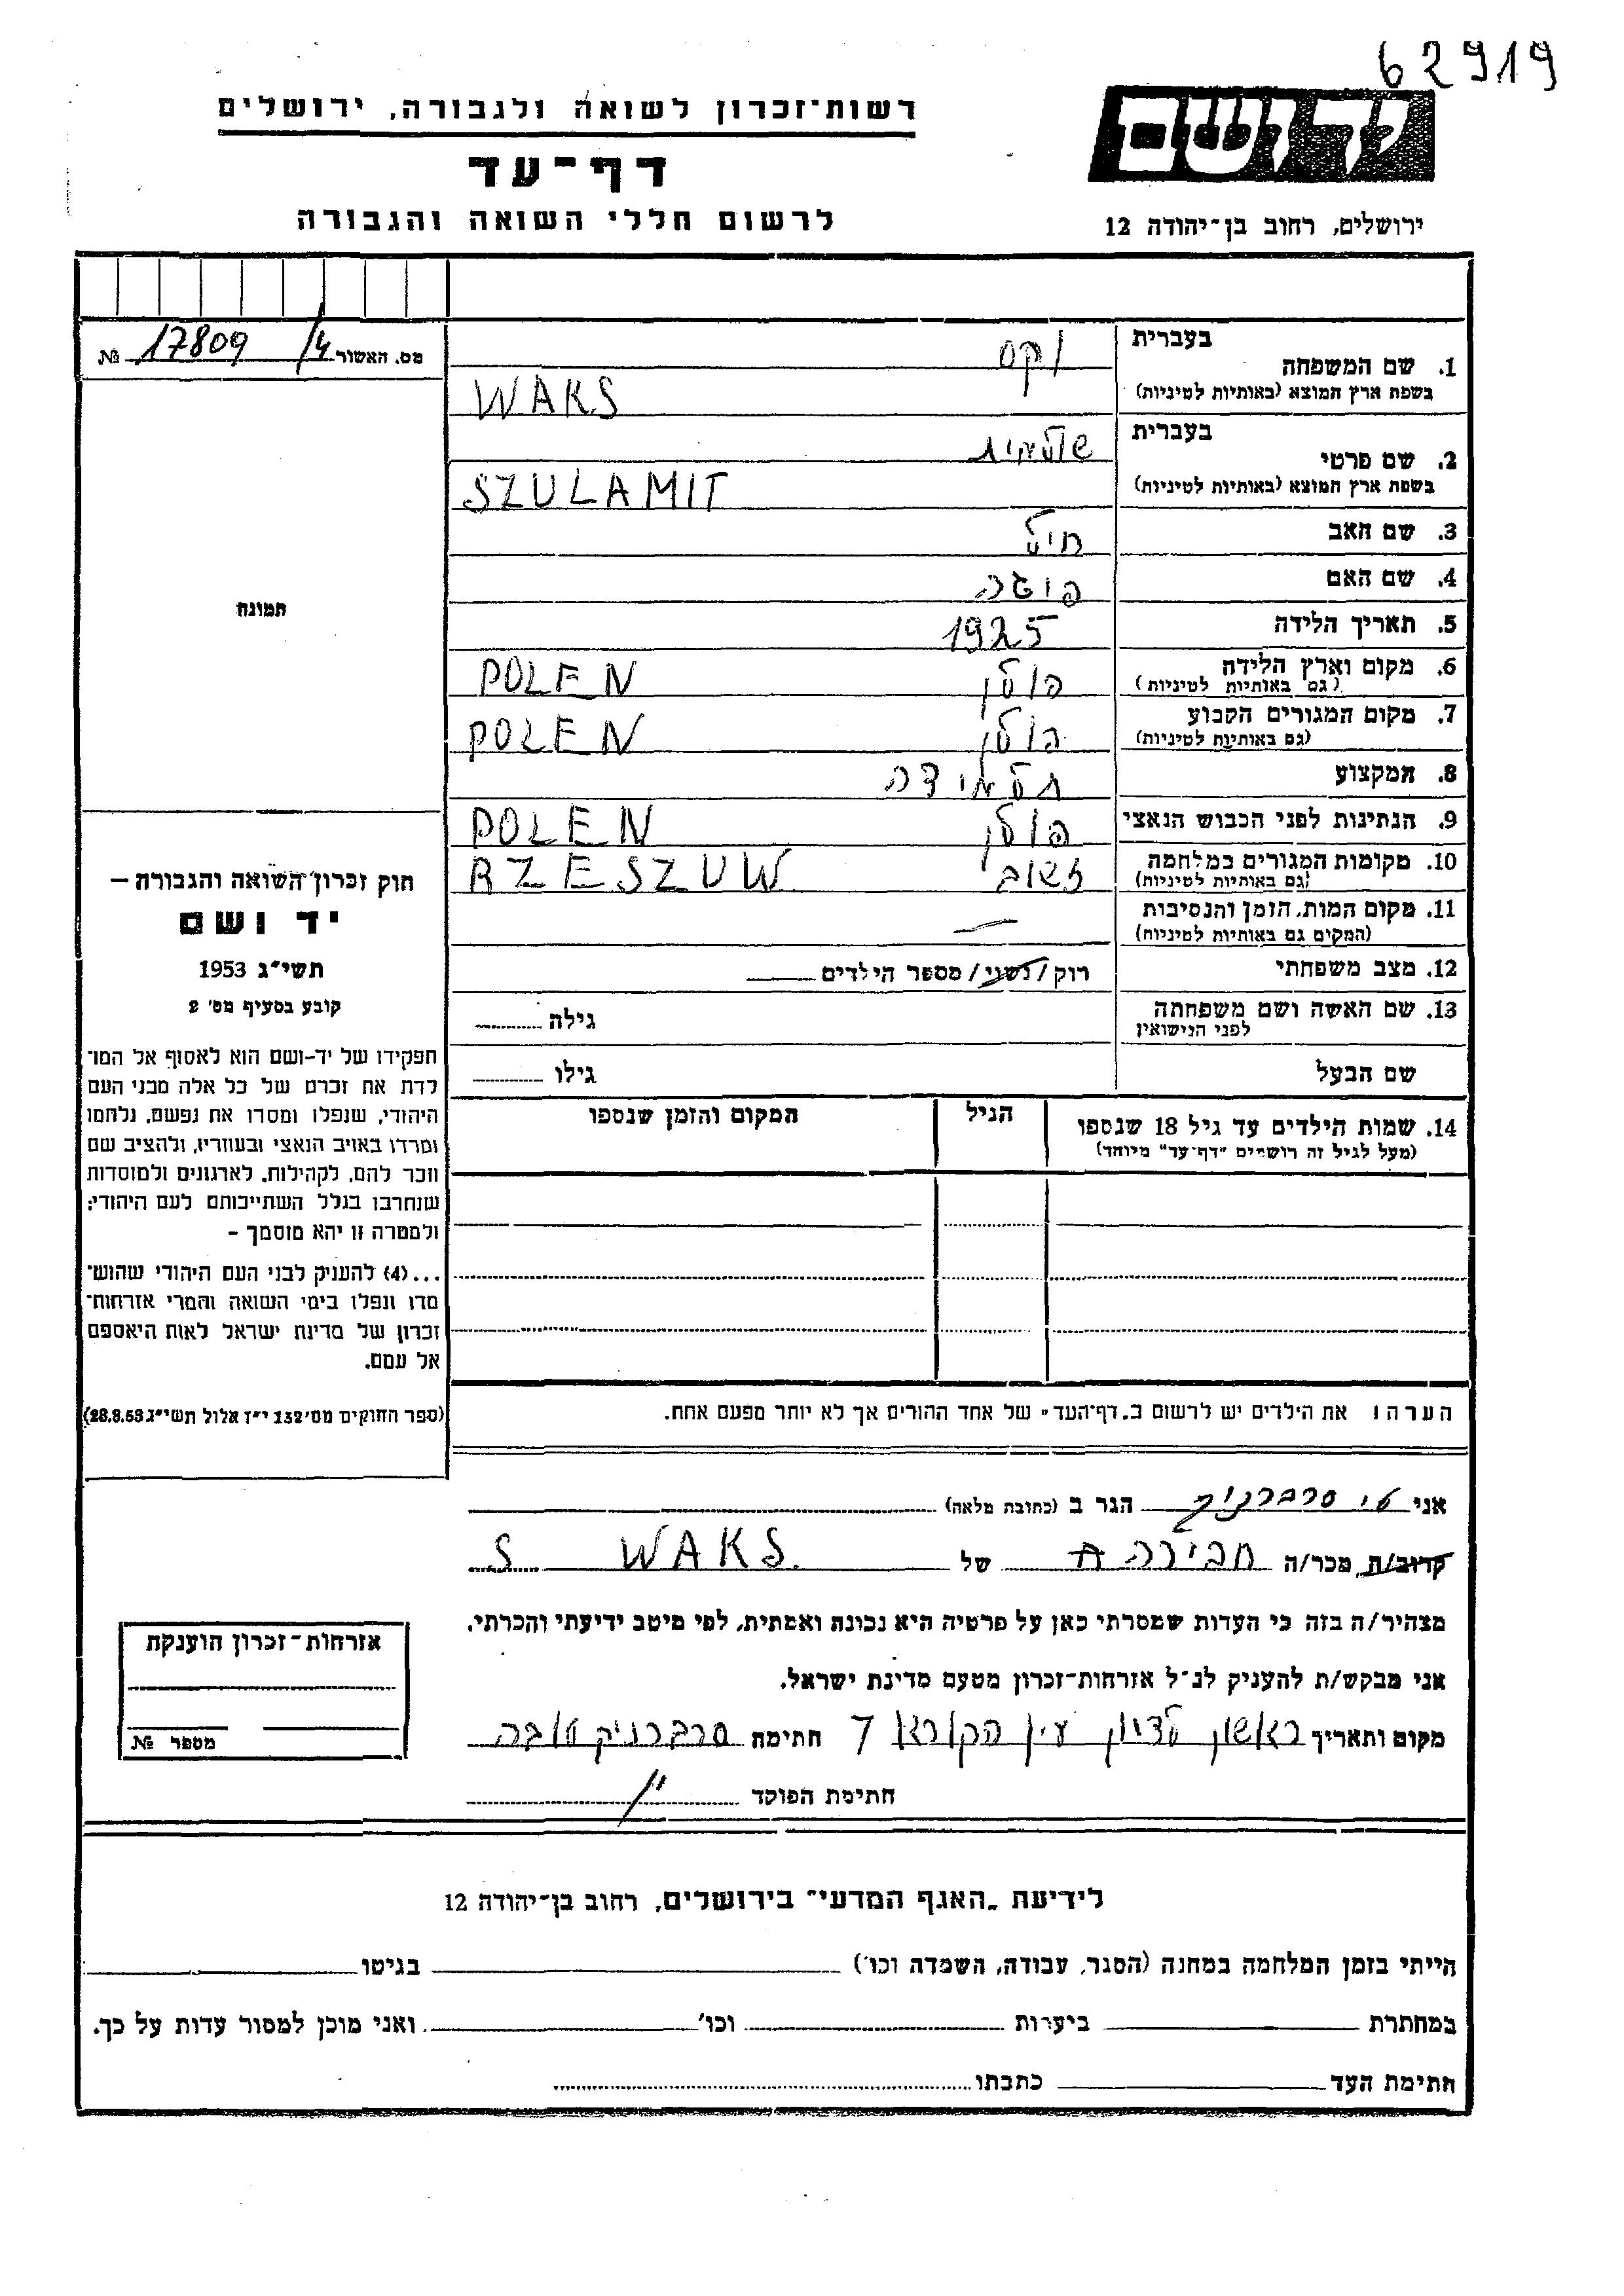 62919
רשות־זכרון לשואה ולגבורה, ירושלים
יד ושם
דף־עד
לרשום חללי השואה והגבורה
ירושלים, רחוב בן־יהודה 12
מס. האשור 17809/4 №
בעברית וקס
1. שם המשפחה
בשפת ארץ המוצא (באותיות לטיניות) WAKS
בעברית שולמית
2. שם פרטי
בשפת ארץ המוצא (באותיות לטיניות) SZULAMIT
3. שם האב חיל
4. שם האם
5. תאריך הלידה 1925
6. מקום וארץ הלידה פולין POLEN
(גם באותיות לטיניות)
7. מקום המגורים הקבוע פולין POLEN
(גם באותיות לטיניות)
8. המקצוע תלמידה
9. הנתינות לפני הכבוש הנאצי פולין POLEN
10. מקומות המגורים במלחמה זשוב RZESZUW
(גם באותיות לטיניות)
11. מקום המות, הזמן והנסיבות —
(המקום גם באותיות לטיניות)
12. מצב משפחתי רוק/נשוי/מספר הילדים
13. שם האשה ושם משפחתה גילה
לפני הנישואין
שם הבעל גילו
14. שמות הילדים עד גיל 18 שנספו הגיל המקום והזמן שנספו
(מעל לגיל זה רושמים "דף־עד" מיוחד)
הערה: את הילדים יש לרשום ב„דף־העד" של אחד ההורים אך לא יותר מפעם אחת.
תמונה
חוק זכרון השואה והגבורה —
יד ושם
תשי"ג 1953
קובע בסעיף מס' 2
תפקידו של יד-ושם הוא לאסוף אל המו־
לדת את זכרם של כל אלה מבני העם
היהודי, שנפלו ומסרו את נפשם, נלחמו
ומרדו באויב הנאצי ובעוזריו, ולהציב שם
וזכר להם, לקהילות, לארגונים ולמוסדות
שנחרבו בגלל השתייכותם לעם היהודי;
ולמטרה זו יהא מוסמך –
...(4) להעניק לבני העם היהודי שהוש־
מדו ונפלו בימי השואה והמרי אזרחות־
זכרון של מדינת ישראל לאות היאספם
אל עמם.
(ספר החוקים מס' 132 י"ז אלול תשי"ג 28.8.53)
אני סרברניק הגר ב (כתובת מלאה)
קרוב/ת, מכר/ה חבירה של WAKS S
מצהיר/ה בזה כי העדות שמסרתי כאן על פרטיה היא נכונה ואמתית, לפי מיטב ידיעתי והכרתי.
אני מבקש/ת להעניק לנ"ל אזרחות־זכרון מטעם מדינת ישראל.
מקום ותאריך ראשון לציון עין הקורא 7 חתימה סרברניק טובה
חתימת הפוקד
אזרחות־זכרון הוענקה
מספר №
לידיעת „האגף המדעי" בירושלים, רחוב בן־יהודה 12
הייתי בזמן המלחמה במחנה (הסגר, עבודה, השמדה וכו') בגיטו
במחתרת ביערות וכו' ואני מוכן למסור עדות על כך.
חתימת העד כתבתו